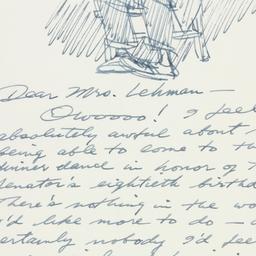 Dear Mrs. Lehman —
Owoooo! I feel
absolutely awful about
being able to come to th
dinner dance in honor of
Senator's eightieth birthd
There's nothing in the wo
I'd like more to do —
certainly nobody I'd feel